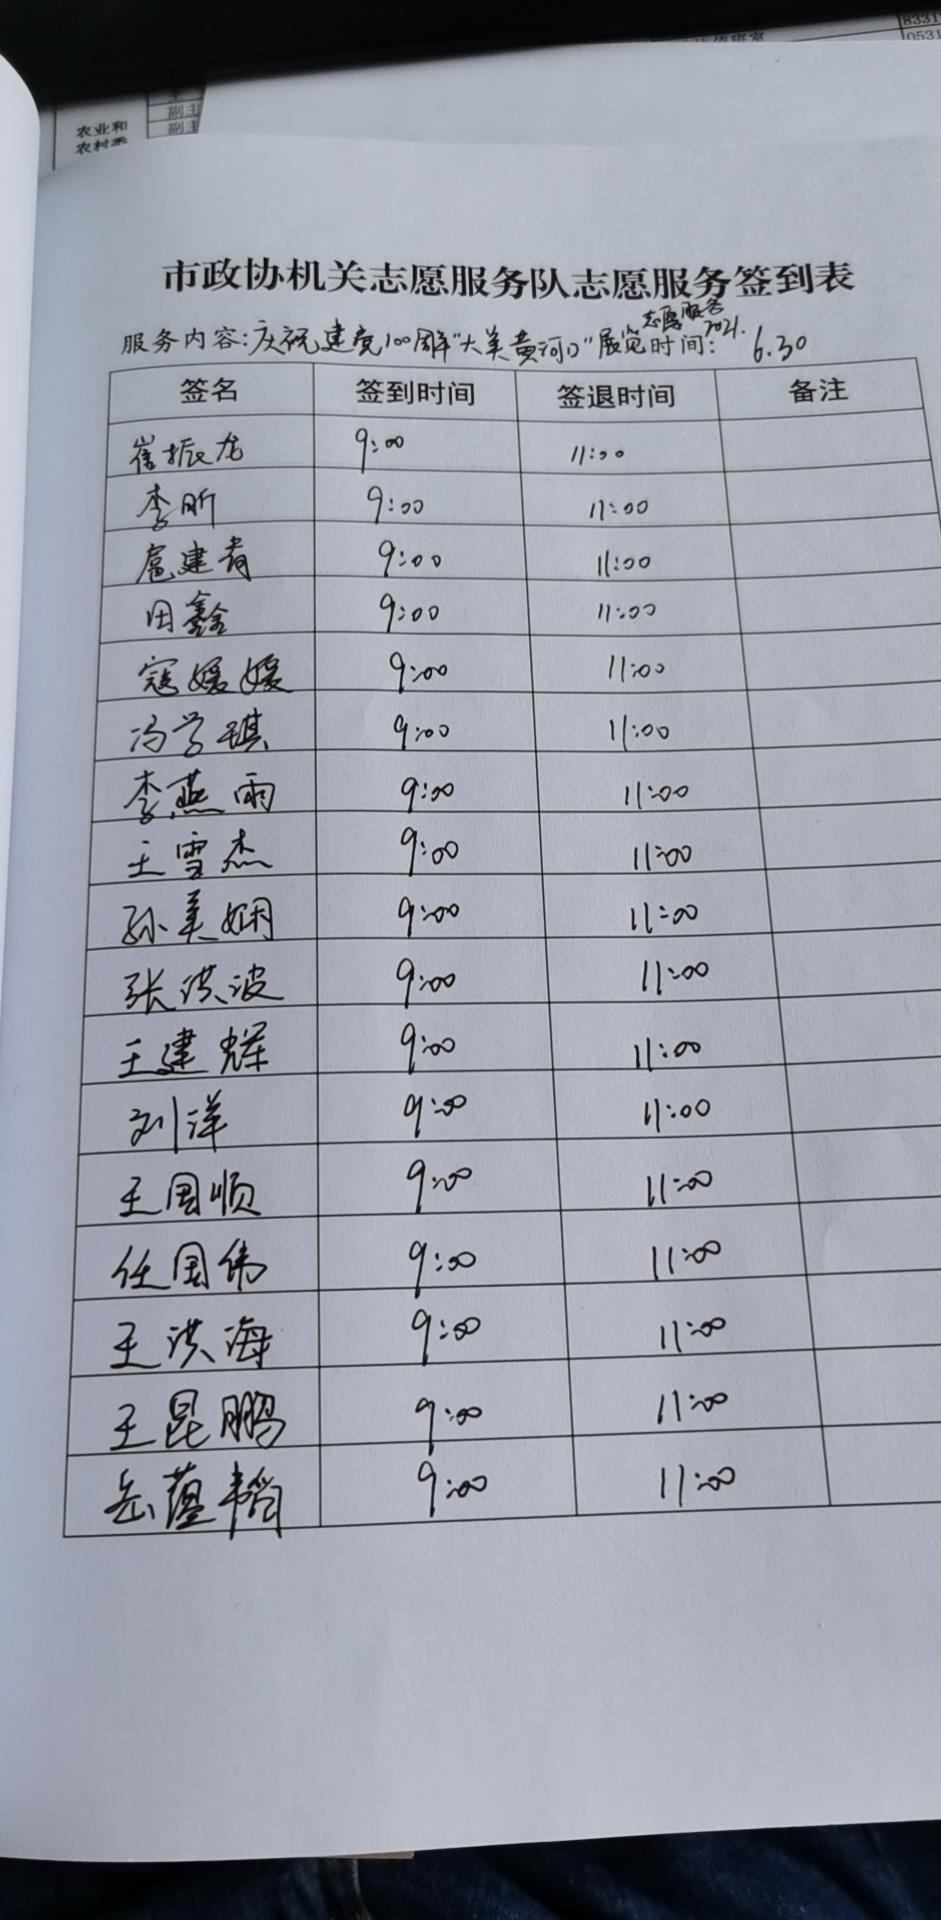 8331
0531
农业和
农村委
副主
副主
市政协机关志愿服务队志愿服务签到表
志愿服务
服务内容:庆祝建党100周年"大美黄河口"展览 时间:2021.6.30
签名 签到时间 签退时间 备注
崔振龙 9:00 11:00
李昕 9:00 11:00
扈建青 9:00 11:00
田鑫 9:00 11:00
寇媛媛 9:00 11:00
冯学琪 9:00 11:00
李燕雨 9:00 11:00
王雪杰 9:00 11:00
孙美娴 9:00 11:00
张洪波 9:00 11:00
王建辉 9:00 11:00
刘洋 9:00 11:00
王国顺 9:00 11:00
任国伟 9:00 11:00
王洪海 9:00 11:00
王昆鹏 9:00 11:00
岳蕴韬 9:00 11:00